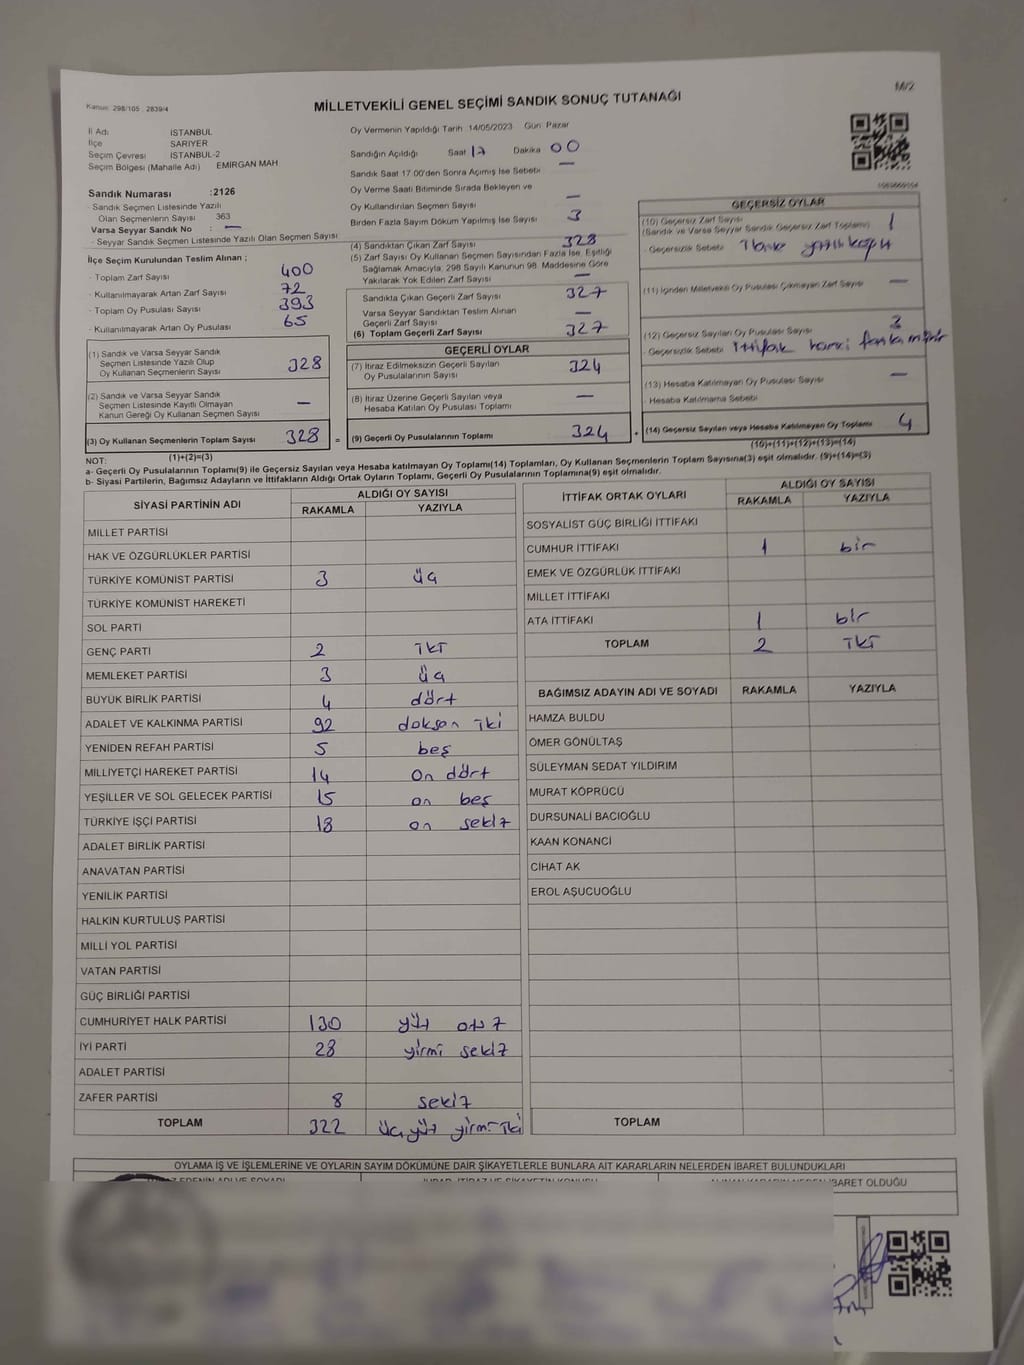 Kanun: 298/105 2839/4
MİLLETVEKİLİ GENEL SEÇİMİ SANDIK SONUÇ TUTANAĞI
M/2
İl Adı İSTANBUL
İlçe SARIYER
Seçim Çevresi İSTANBUL-2
Seçim Bölgesi (Mahalle Adı) EMİRGAN MAH
Sandık Numarası :2126
Sandık Seçmen Listesinde Yazılı
Olan Seçmenlerin Sayısı 363
Varsa Seyyar Sandık No : —
- Seyyar Sandık Seçmen Listesinde Yazılı Olan Seçmen Sayısı:
İlçe Seçim Kurulundan Teslim Alınan ;
- Toplam Zarf Sayısı 400
- Kullanılmayarak Artan Zarf Sayısı 72
- Toplam Oy Pusulası Sayısı 393
- Kullanılmayarak Artan Oy Pusulası 65
(1) Sandık ve Varsa Seyyar Sandık
Seçmen Listesinde Yazılı Olup
Oy Kullanan Seçmenlerin Sayısı 328
(2) Sandık ve Varsa Seyyar Sandık
Seçmen Listesinde Kayıtlı Olmayan
Kanun Gereği Oy Kullanan Seçmen Sayısı —
(3) Oy Kullanan Seçmenlerin Toplam Sayısı 328 =
(1)+(2)=(3)
Oy Vermenin Yapıldığı Tarih 14/05/2023 Gün: Pazar
Sandığın Açıldığı Saat 17 Dakika 00
Sandık Saat 17.00'den Sonra Açımış İse Sebebi —
Oy Verme Saati Bitiminde Sırada Bekleyen ve
Oy Kullandırılan Seçmen Sayısı —
Birden Fazla Sayım Döküm Yapılmış İse Sayısı 3
(4) Sandıktan Çıkan Zarf Sayısı 328
(5) Zarf Sayısı Oy Kullanan Seçmen Sayısından Fazla İse, Eşitliği
Sağlamak Amacıyla; 298 Sayılı Kanunun 98. Maddesine Göre
Yakılarak Yok Edilen Zarf Sayısı —
Sandıkta Çıkan Geçerli Zarf Sayısı 327
Varsa Seyyar Sandıktan Teslim Alınan
Geçerli Zarf Sayısı —
(6) Toplam Geçerli Zarf Sayısı 327
GEÇERLİ OYLAR
(7) İtiraz Edilmeksizin Geçerli Sayılan
Oy Pusulalarının Sayısı 324
(8) İtiraz Üzerine Geçerli Sayılan veya
Hesaba Katılan Oy Pusulası Toplamı —
(9) Geçerli Oy Pusulalarının Toplamı 324 +
GEÇERSİZ OYLAR
(10) Geçersiz Zarf Sayısı
(Sandık ve Varsa Seyyar Sandık Geçersiz Zarf Toplamı) 1
- Geçersizlik Sebebi
(11) İçinden Milletvekili Oy Pusulası Çıkmayan Zarf Sayısı —
(12) Geçersiz Sayılan Oy Pusulası Sayısı 3
- Geçersizlik Sebebi İttifak harici fazla mühür
(13) Hesaba Katılmayan Oy Pusulası Sayısı —
- Hesaba Katılmama Sebebi
(14) Geçersiz Sayılan veya Hesaba Katılmayan Oy Toplamı 4
(10)+(11)+(12)+(13)=(14)
NOT:
a- Geçerli Oy Pusulalarının Toplamı(9) ile Geçersiz Sayılan veya Hesaba katılmayan Oy Toplamı(14) Toplamları, Oy Kullanan Seçmenlerin Toplam Sayısına(3) eşit olmalıdır. (9)+(14)=(3)
b- Siyasi Partilerin, Bağımsız Adayların ve İttifakların Aldığı Ortak Oyların Toplamı, Geçerli Oy Pusulalarının Toplamına(9) eşit olmalıdır.
SİYASİ PARTİNİN ADI ALDIĞI OY SAYISI
RAKAMLA YAZIYLA
MİLLET PARTİSİ
HAK VE ÖZGÜRLÜKLER PARTİSİ
TÜRKİYE KOMÜNİST PARTİSİ 3 üç
TÜRKİYE KOMÜNİST HAREKETİ
SOL PARTİ
GENÇ PARTİ 2 iki
MEMLEKET PARTİSİ 3 üç
BÜYÜK BİRLİK PARTİSİ 4 dört
ADALET VE KALKINMA PARTİSİ 92 doksan iki
YENİDEN REFAH PARTİSİ 5 beş
MİLLİYETÇİ HAREKET PARTİSİ 14 on dört
YEŞİLLER VE SOL GELECEK PARTİSİ 15 on beş
TÜRKİYE İŞÇİ PARTİSİ 18 on sekiz
ADALET BİRLİK PARTİSİ
ANAVATAN PARTİSİ
YENİLİK PARTİSİ
HALKIN KURTULUŞ PARTİSİ
MİLLİ YOL PARTİSİ
VATAN PARTİSİ
GÜÇ BİRLİĞİ PARTİSİ
CUMHURİYET HALK PARTİSİ 130 yüz otuz
İYİ PARTİ 28 yirmi sekiz
ADALET PARTİSİ
ZAFER PARTİSİ 8 sekiz
TOPLAM 322 üçyüz yirmi iki
İTTİFAK ORTAK OYLARI ALDIĞI OY SAYISI
RAKAMLA YAZIYLA
SOSYALİST GÜÇ BİRLİĞİ İTTİFAKI
CUMHUR İTTİFAKI 1 bir
EMEK VE ÖZGÜRLÜK İTTİFAKI
MİLLET İTTİFAKI
ATA İTTİFAKI 1 bir
TOPLAM 2 iki
BAĞIMSIZ ADAYIN ADI VE SOYADI RAKAMLA YAZIYLA
HAMZA BULDU
ÖMER GÖNÜLTAŞ
SÜLEYMAN SEDAT YILDIRIM
MURAT KÖPRÜCÜ
DURSUNALİ BACIOĞLU
KAAN KONANCİ
CİHAT AK
EROL AŞUCUOĞLU
TOPLAM
OYLAMA İŞ VE İŞLEMLERİNE VE OYLARIN SAYIM DÖKÜMÜNE DAİR ŞİKAYETLERLE BUNLARA AİT KARARLARIN NELERDEN İBARET BULUNDUKLARI